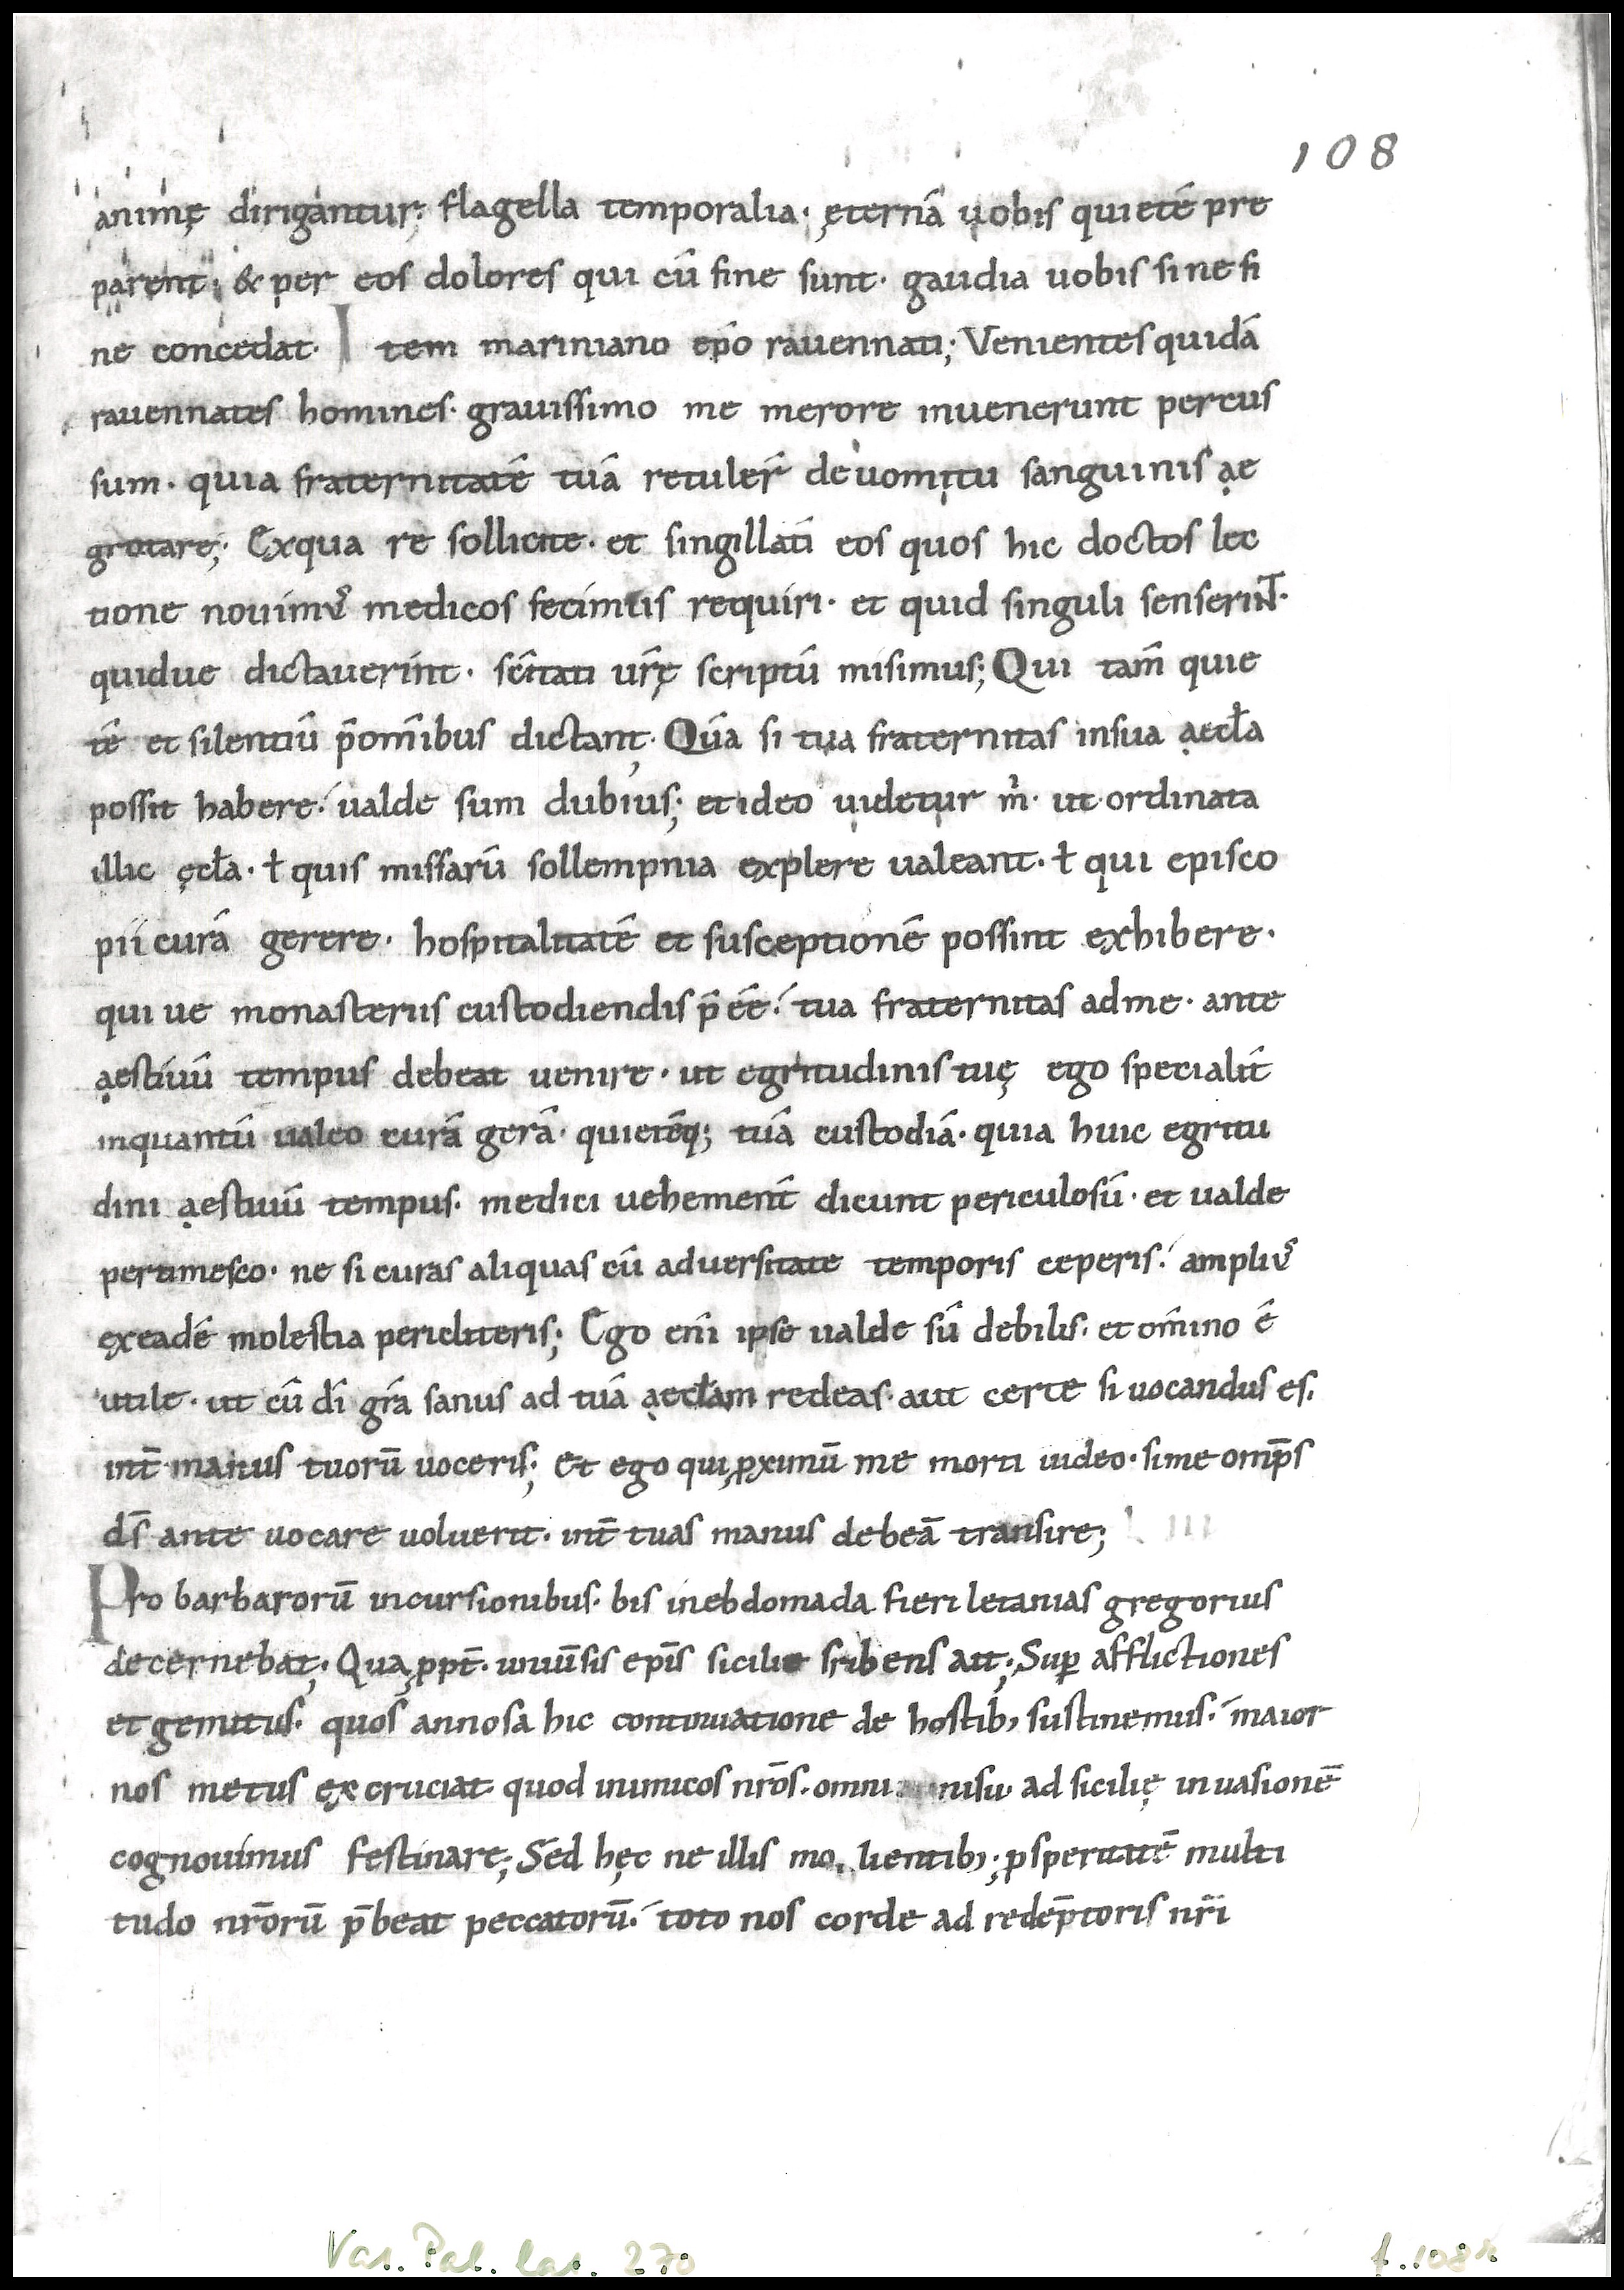 108
animę dirigantur; flagella temporalia· ęternā uobis quietē pre
parent; & per eos dolores qui cū fine sunt· gaudia uobis sine fi
ne concedat· Item mariniano ep̄o rauennati; Venientes quidā
rauennates homines· grauissimo me merore inuenerunt percus
sum· quia fraternitatē tuā retuler̄ de uomitu sanguinis ae
grotare; Ex qua re sollicite· et singillatī eos quos hic doctos lec
tione nouimꝰ medicos fecimus requiri· et quid singuli senserint·
quidue dictauerint· sc̄itati ur̄ę scriptū misimus; Qui tam̄ quie
tē et silentiū p̄ om̄ibus dictant; Quā si tua fraternitas in sua aecła
possit habere· ualde sum dubius; et ideo uidetur m̍· ut ordinata
illic ęcła· ł quis missarū sollempnia explere ualeant· ł qui episco
pii curā gerere· hospitalitatē et susceptionē possint exhibere·
qui ue monasteriis custodiendis p̄ eē· tua fraternitas ad me· ante
aestiuū tempus debeat uenire· ut egritudinis tuę ego specialit̄
inquantū ualeo curā gerā· quietēq; tuā custodiā· quia huic egritu
dini aestiuū tempus· medici uehement̄ dicunt periculosū· et ualde
pertimesco· ne si curas aliquas cū aduersitate temporis ceperis· ampliꝰ
ex eadē molestia pericliteris; Ego eni̅ ipse ualde sū debilis· et om̄ino ē
utile· ut cū dī gr̄a sanus ad tuā aecłam redeas· aut certe si uocandus es·
int̄ manus tuorū uoceris; Et ego qui ꝓximū me morti uideo· si me omp̄s
ds̄ ante uocare uoluerit· int̄ tuas manus debeā transire;
Pro barbarorū incursionibus· bis in ebdomada fieri letanias gregorius
decernebat; Qua ꝓpt̄· uniuūsis ep̄is sicilie sribens ait; Suꝑ afflictiones
et gemitus· quos annosa hic continuatione de hostib; sustinemus· maior
nos metus excruciat quod inimicos nr̄os· omni nisu· ad sicilię inuasionē
cognouimus festinare; Sed hęc ne illis mo lientib; ꝓsperitatē multi
tudo nr̄orū p̄beat peccatorū· toto nos corde ad redēptoris nr̄i
Vat. Pal. lat. 270
f. 108r